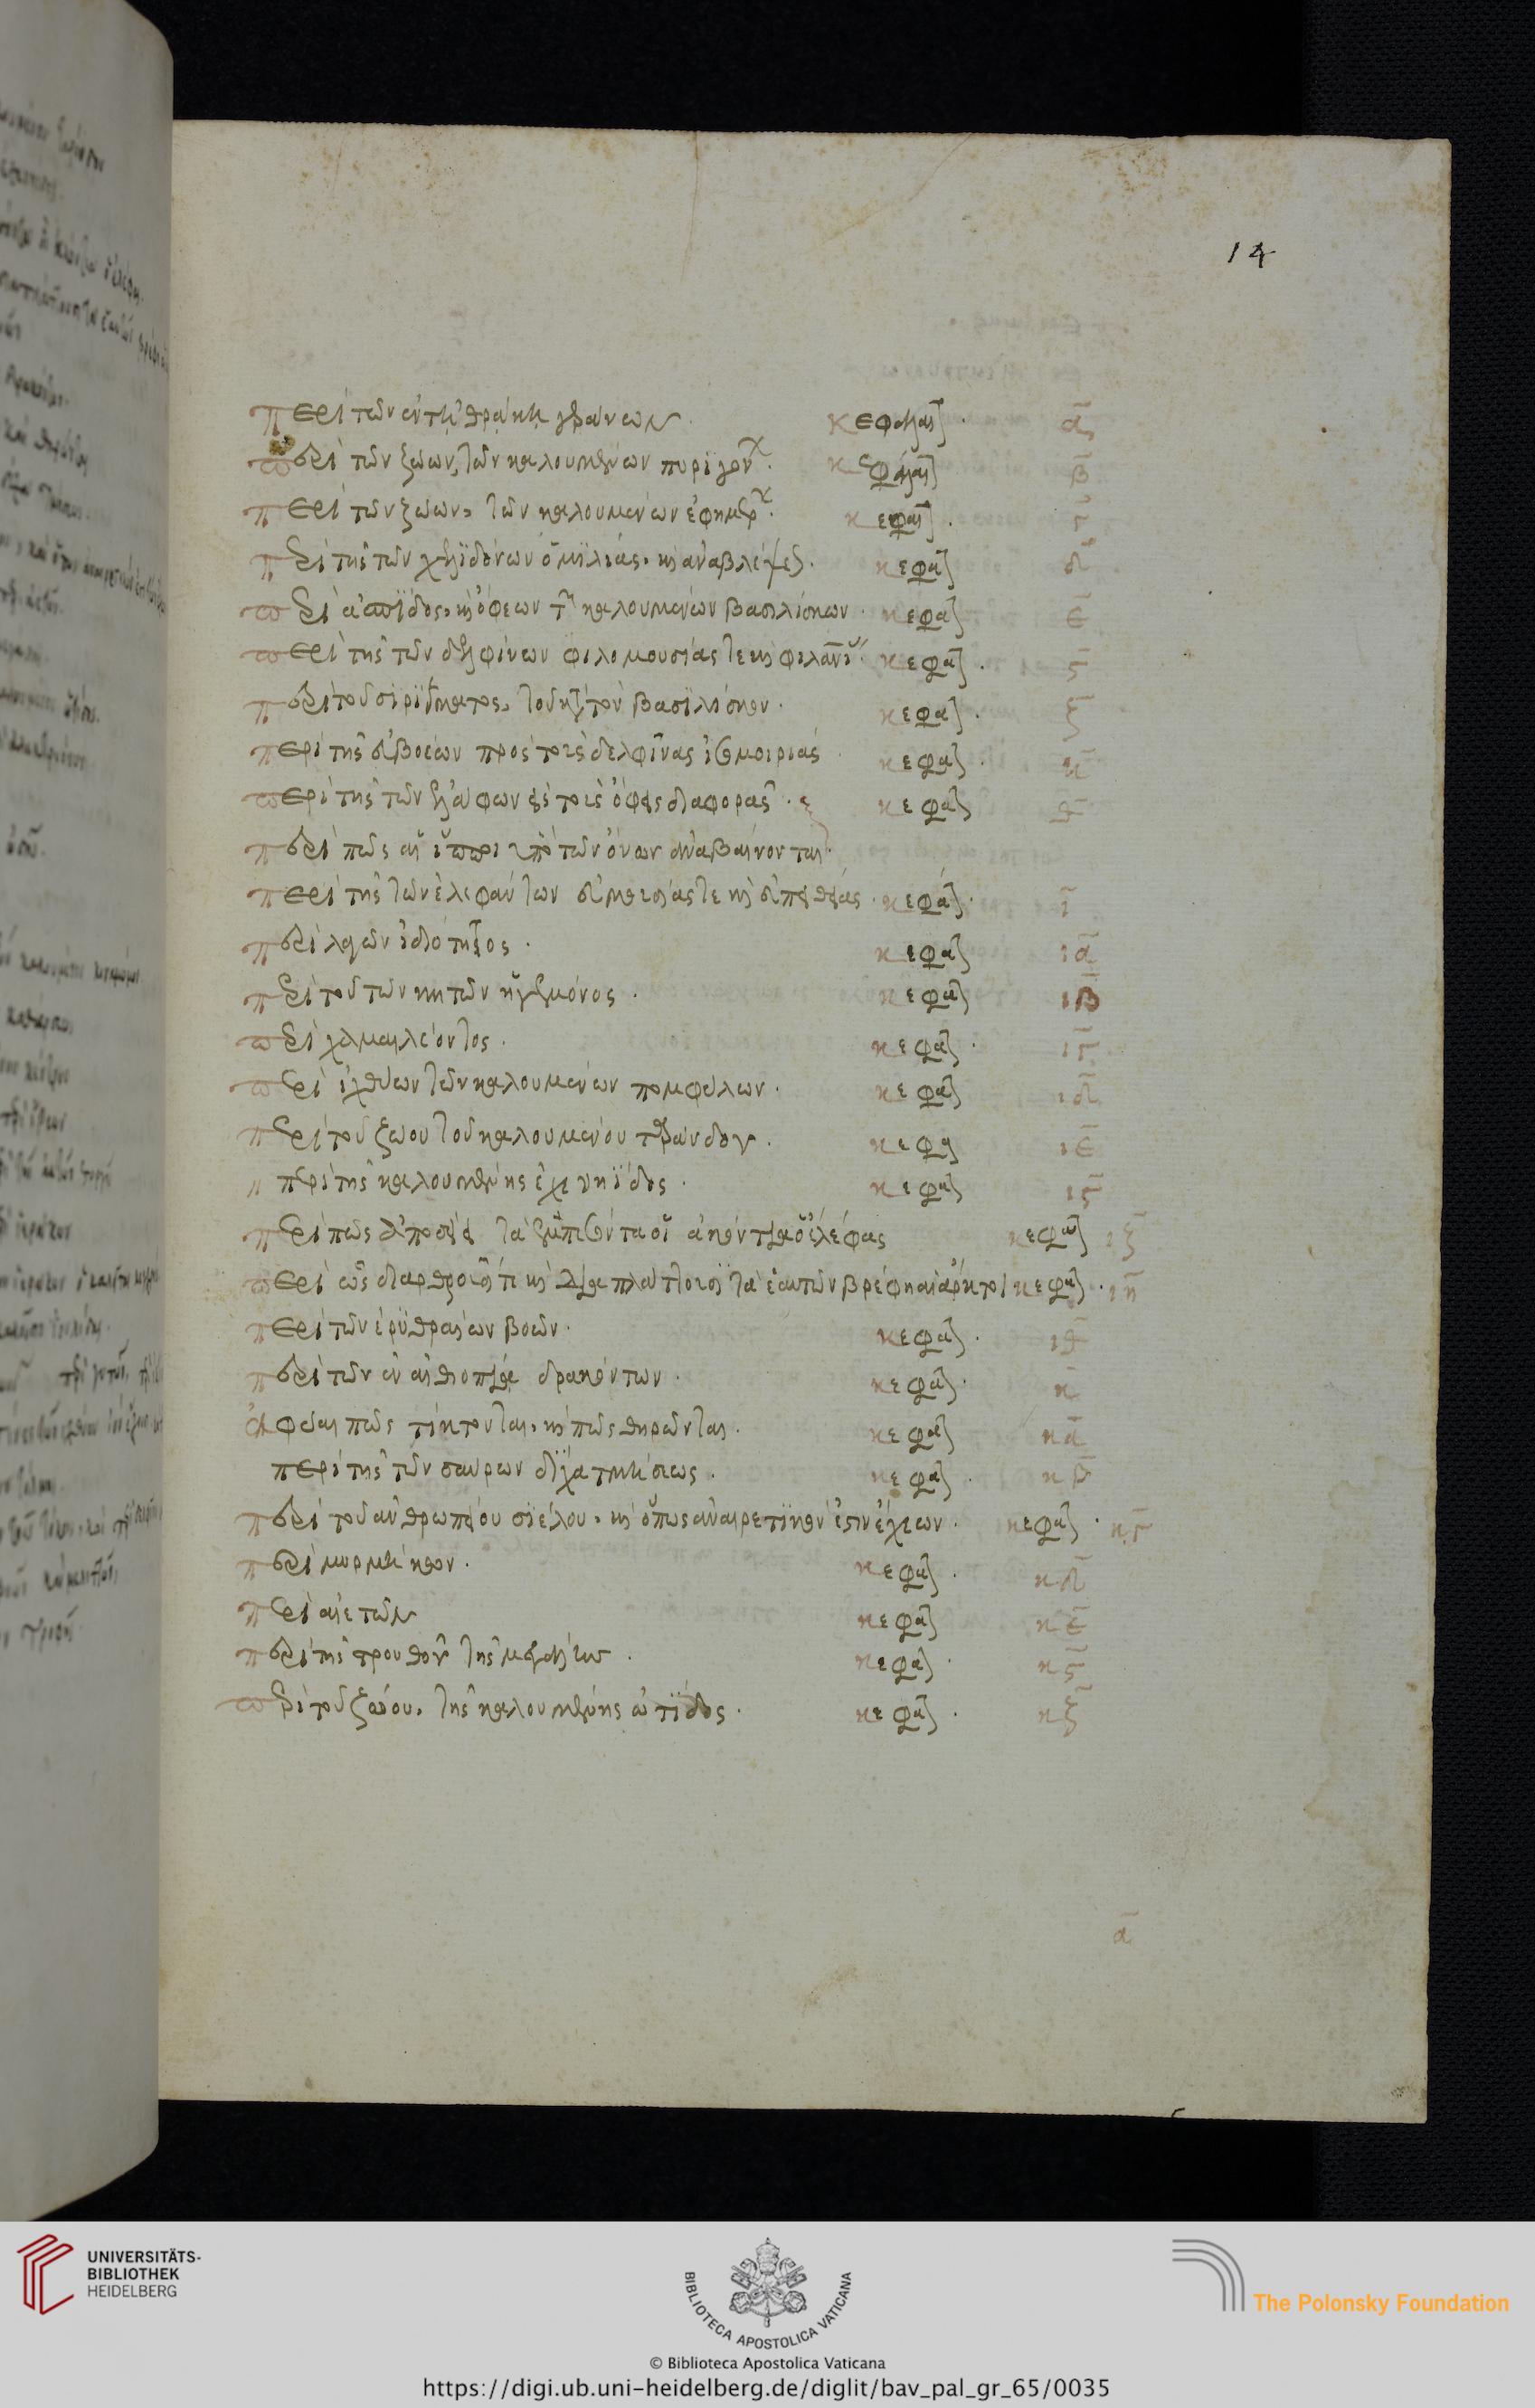 14
περὶ τῶν ἐν τῇ θράκῃ γεράνων κεφάλαι α
περὶ τῶν ζώων, τῶν καλουμένων πυριγόν κεφάλαι β
περὶ τῶν ζώων, τῶν καλουμένων ἐφημερ κεφαλ γ
περὶ τῆς τῶν χελϊδόνων ὁμϊλίας, καὶ ἀναβλέψεως κεφα δ
περὶ ἀσπίδος, καὶ ὄφεων τῶν καλουμένων βασιλίσκων κεφα ε
περὶ τῆς τῶν δελφίνων φιλομουσίας τε καὶ φιλανου κεφα ϛ
περὶ τοῦ συρίγματος, τοῦ κατὰ τὸν βασϊλίσκον κεφα ζ
περὶ τῆς τῶν βοείων πρὸς τοὺς δελφῖνας ἰσομοιρίας κεφα η
περὶ τῆς τῶν ἐλάφων εἰς τοὺς ὄφεις διαφορᾶς κεφα θ
περὶ πῶς αἱ ἵπποι ὑπὸ τῶν ὄνων ἀναβαίνονται
περὶ τῆς τῶν ἐλεφάντων εὐηκοΐας τε καὶ εὐπειθείας κεφα ι
περὶ λαγῶν ἰδιότητος κεφα ια
περὶ τοῦ τῶν κητῶν ἡγεμόνος κεφα ιβ
περὶ χαμαιλέοντος κεφα ιγ
περὶ ἰχθύων τῶν καλουμένων πομφύλων κεφα ιδ
περὶ τοῦ ζώου τοῦ καλουμένου ταράνδου κεφα ιε
περὶ τῆς καλουμένης ἐχενηΐδος κεφα ιϛ
περὶ πῶς ἀποσείει τὰ ἐμπεσόντα οἱ ἀκόντια ὁ ἐλέφας κεφα ιζ
περὶ ὡς διαρθροῦσί τε καὶ διαπλάττουσι τὰ ἑαυτῶν βρέφη αἱ ἄρκτοι κεφα ιη
περὶ τῶν ἐρυθραίων βοῶν κεφα ιθ
περὶ τῶν ἐν αἰθιοπίᾳ δρακόντων κεφα κ
ἀφύαι πῶς τίκτονται, καὶ πῶς θηρῶνται κεφα κα
περὶ τῆς τῶν σαύρων δίχα τμήσεως κεφα κβ
περὶ τοῦ ἀνθρωπείου σιέλου, καὶ ὅπως ἀναιρετϊκόν ἐστιν ἔχεων κεφα κγ
περὶ μυρμήκων κεφα κδ
περὶ αἰετῶν κεφα κε
περὶ τῆς στρουθοῦ τῆς μεγάλης κεφα κϛ
περὶ τοῦ ζώου, τῆς καλουμένης ὠτίδος κεφα κζ
α
UNIVERSITÄTS-
BIBLIOTHEK
HEIDELBERG
BIBLIOTECA APOSTOLICA VATICANA
The Polonsky Foundation
© Biblioteca Apostolica Vaticana
https://digi.ub.uni-heidelberg.de/diglit/bav_pal_gr_65/0035